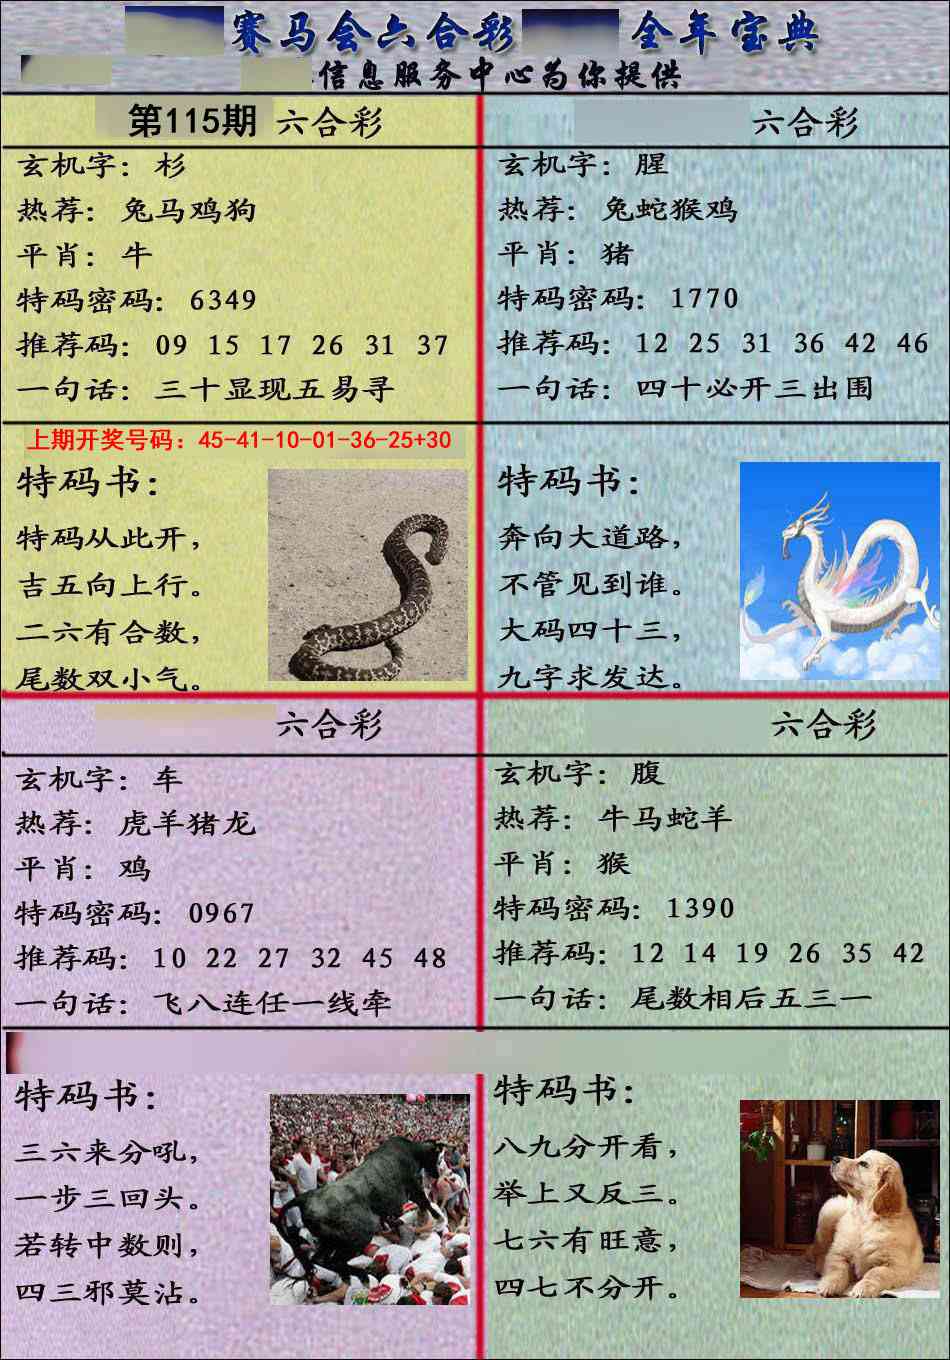 赛马会六合彩 全年宝典
信息服务中心为你提供
第115期 六合彩
玄机字：杉
热荐：兔马鸡狗
平肖：牛
特码密码：6349
推荐码：09 15 17 26 31 37
一句话：三十显现五易寻
上期开奖号码：45-41-10-01-36-25+30
特码书：
特码从此开，
吉五向上行。
二六有合数，
尾数双小气。
六合彩
玄机字：腥
热荐：兔蛇猴鸡
平肖：猪
特码密码：1770
推荐码：12 25 31 36 42 46
一句话：四十必开三出围
特码书：
奔向大道路，
不管见到谁。
大码四十三，
九字求发达。
六合彩
玄机字：车
热荐：虎羊猪龙
平肖：鸡
特码密码：0967
推荐码：10 22 27 32 45 48
一句话：飞八连任一线牵
特码书：
三六来分吼，
一步三回头。
若转中数则，
四三邪莫沾。
六合彩
玄机字：腹
热荐：牛马蛇羊
平肖：猴
特码密码：1390
推荐码：12 14 19 26 35 42
一句话：尾数相后五三一
特码书：
八九分开看，
举上又反三。
七六有旺意，
四七不分开。